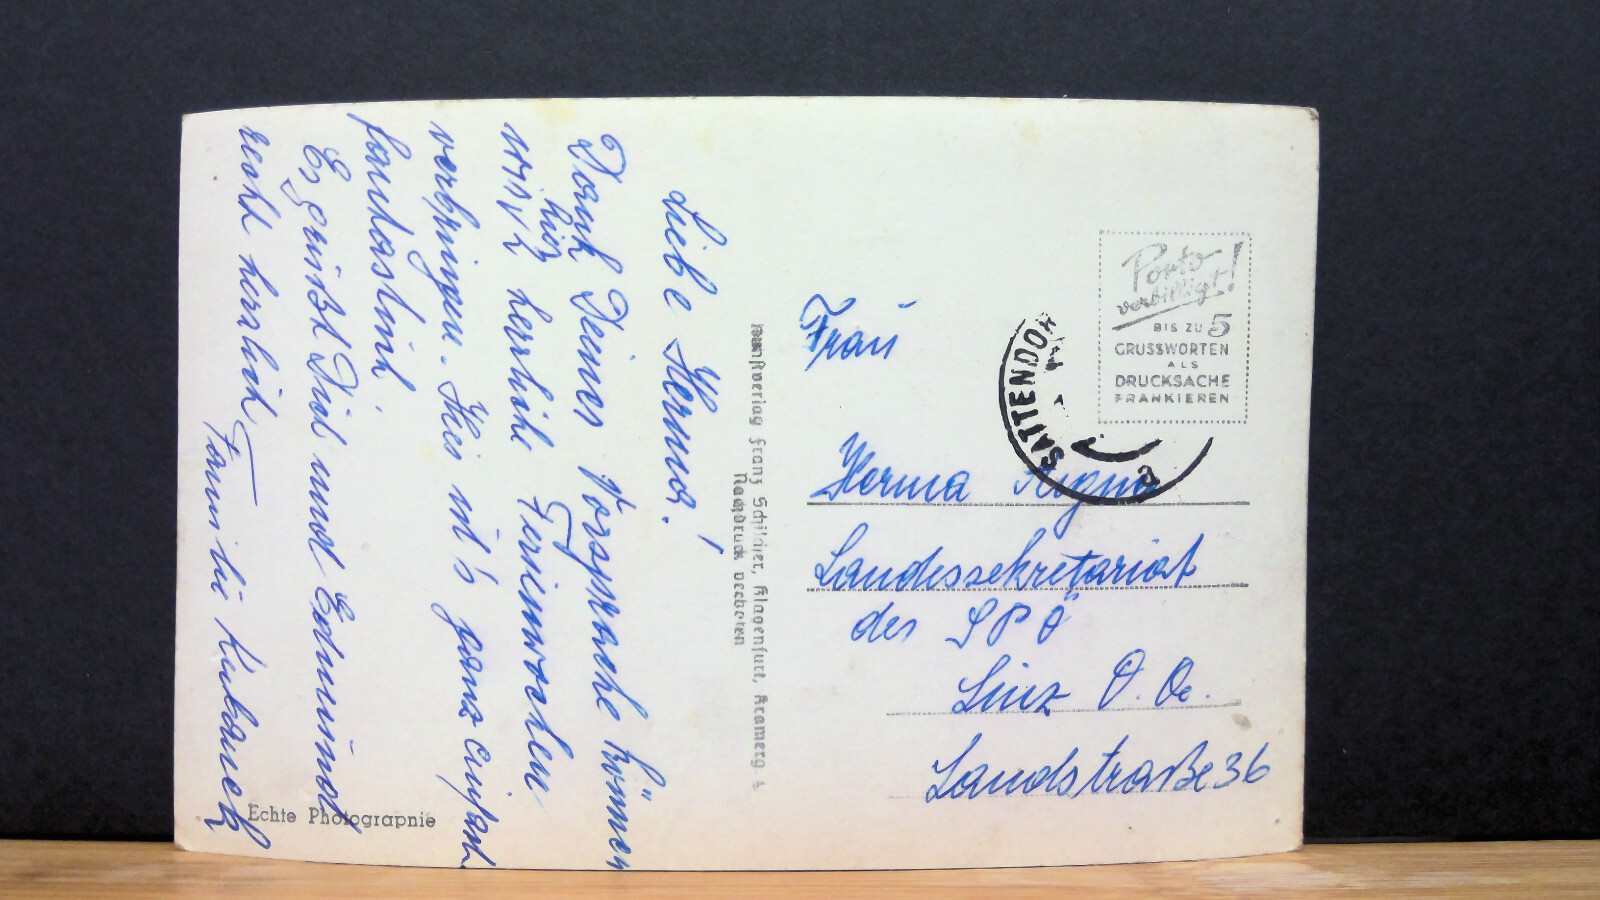 Liebe Herma!
Dank Deiner Vorsprache können
wir hier herrliche Ferienwochen
verbringen. Hier ist's ganz einfach
fantastisch.
Es grüßt Dich und Edmund
recht herzlich
Familie
Echte Photographie
Kunstverlag Franz Schilcher, Klagenfurt, Kramerg. 4
Nachdruck verboten
Porto
verbilligt!
BIS ZU 5
GRUSSWORTEN
ALS
DRUCKSACHE
FRANKIEREN
SATTENDOR
a
Frau
Herma
Landessekretariat
der SPÖ
Linz O.Ö.
Landstraße 36